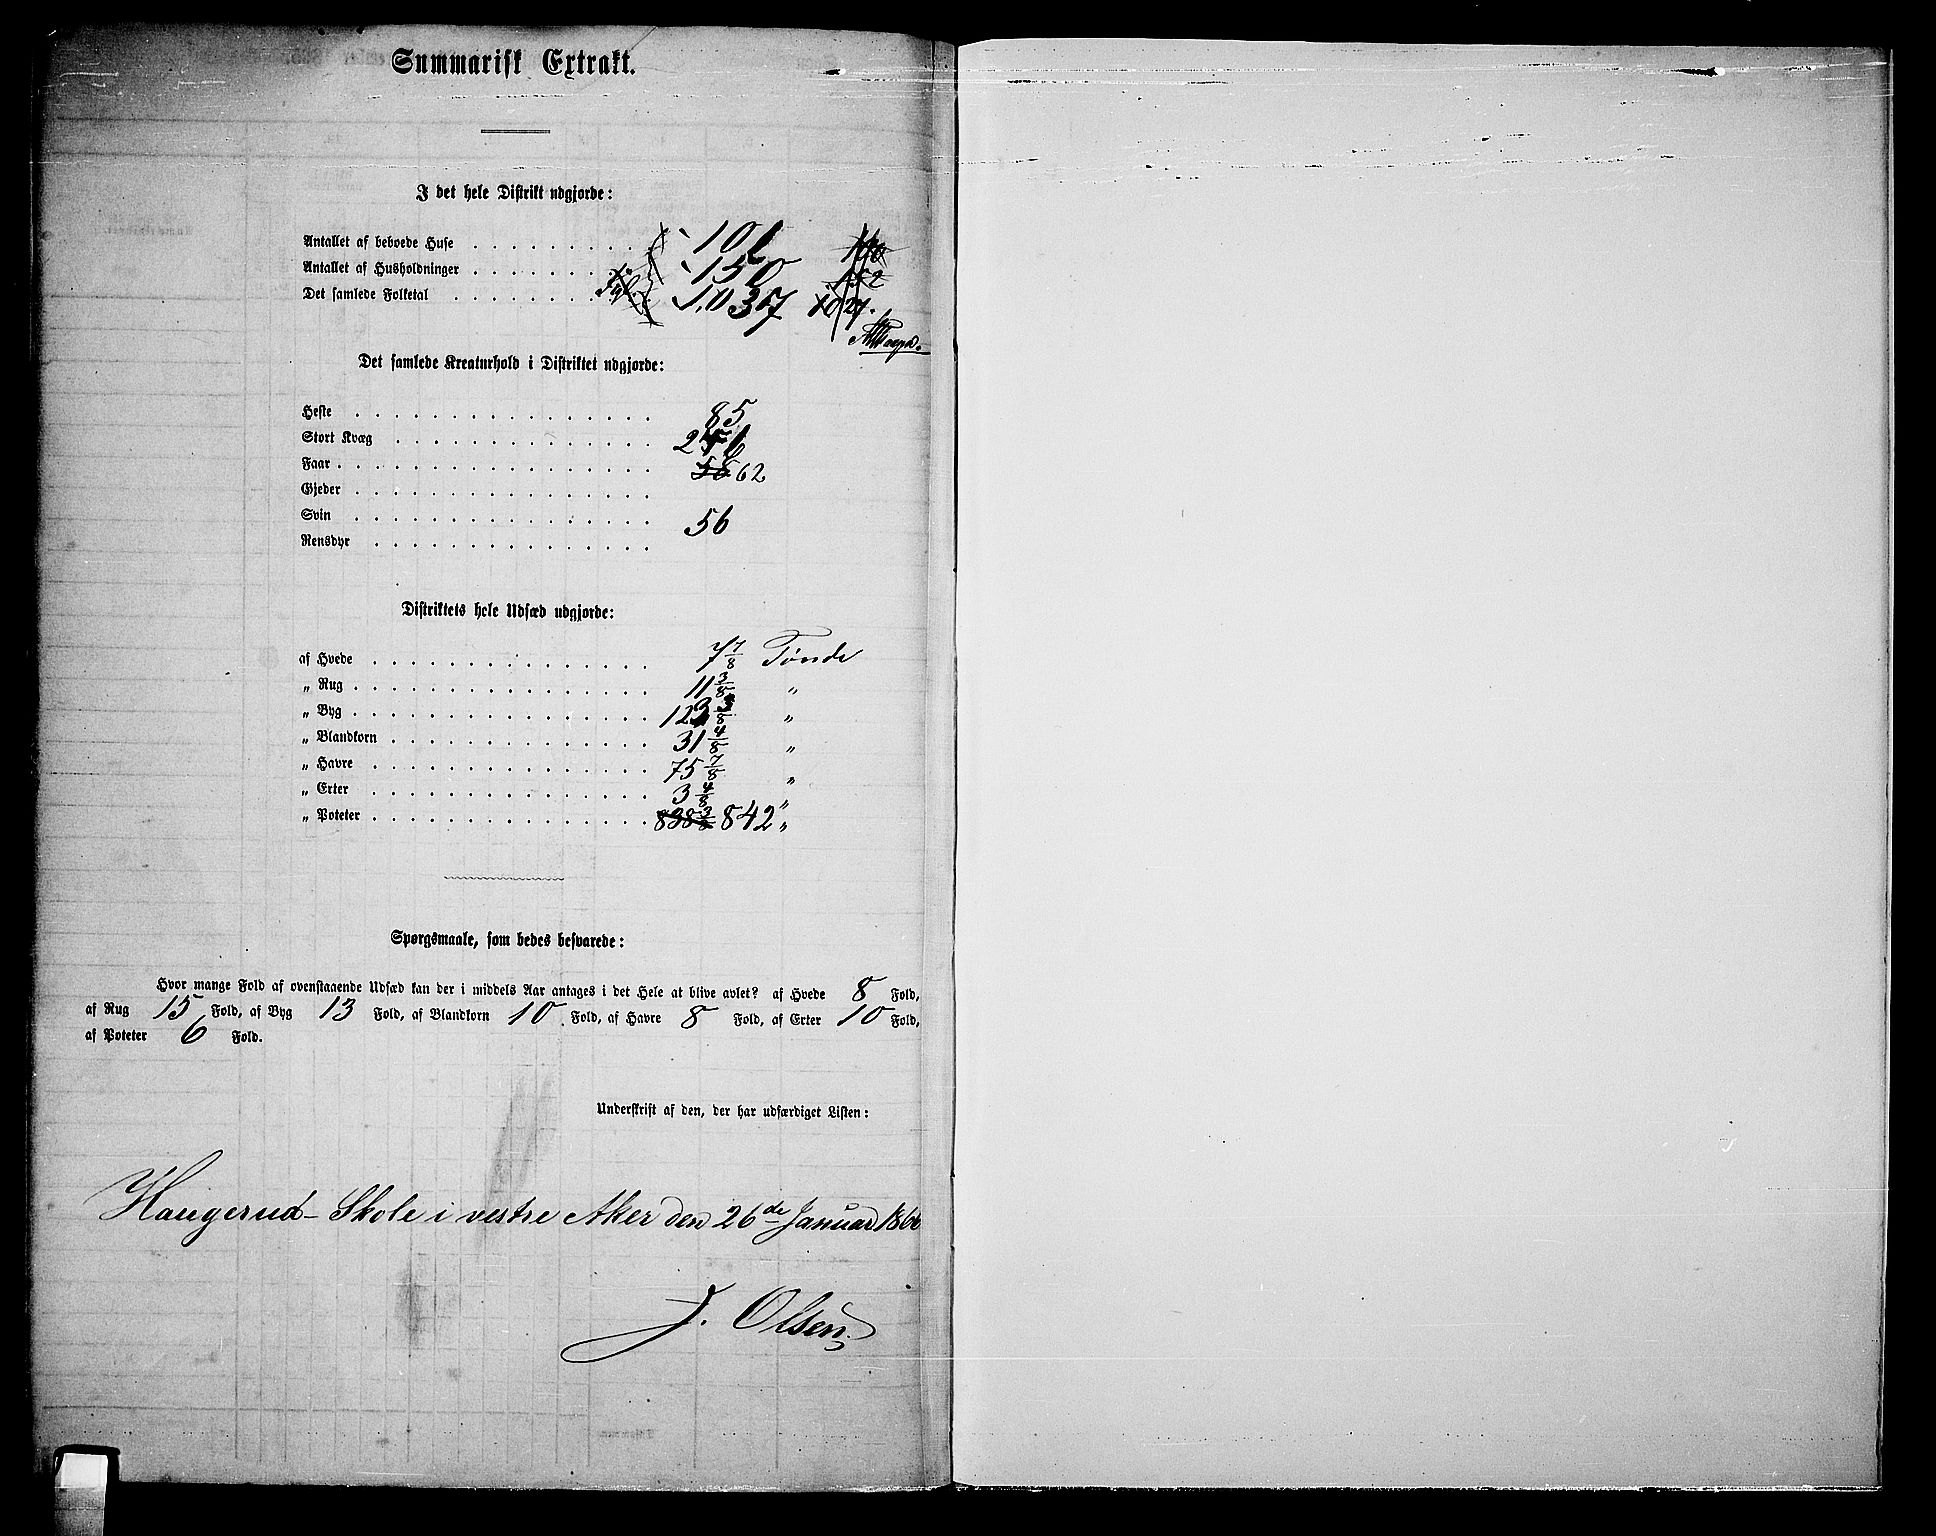 Summarisk Extrakt.
I det hele Distrikt udgjorde:
Antallet af beboede Huse . . . . . . . . . 101
Antallet af Husholdninger . . . . . . . . 150 152
Det samlede Folketal . . . . . . . . 1,037 1027.
Det samlede Kreaturhold i Distriktet udgjorde:
Heste . . . . . . . . . . . . . . . . 85
Stort Kvæg . . . . . . . . . . . . . .
Faar . . . . . . . . . . . . . . . . . 58 62
Gjeder . . . . . . . . . . . . . . . .
Svin . . . . . . . . . . . . . . . . 56
Rensdyr . . . . . . . . . . . . . . .
Distriktets hele Udsæd udgjorde:
af Hvede . . . . . . . . . . . . . . . 7 7/8 Tønde
„ Rug . . . . . . . . . . . . . . . . 11 3/8 „
„ Byg . . . . . . . . . . . . . . . . 123 3/8 „
„ Blandkorn . . . . . . . . . . . . . . 31 4/8 „
„ Havre . . . . . . . . . . . . . . . 75 7/8 „
„ Erter . . . . . . . . . . . . . . . 3 4/8 „
„ Poteter . . . . . . . . . . . . . . . 838 3/8 842 „
Spørgsmaale, som bedes besvarede:
Hvor mange Fold af ovenstaaende Udsæd kan der i middels Aar antages i det Hele at blive avlet? af Hvede 8 Fold,
af Rug 15 Fold, af Byg 13 Fold, af Blandkorn 10 Fold, af Havre 8 Fold, af Erter 10 Fold,
af Poteter 6 Fold.
Underskrift af den, der har udfærdiget Listen:
Haugerud-Skole i vestre Aker den 26de Januar 1866
J. Olsen.